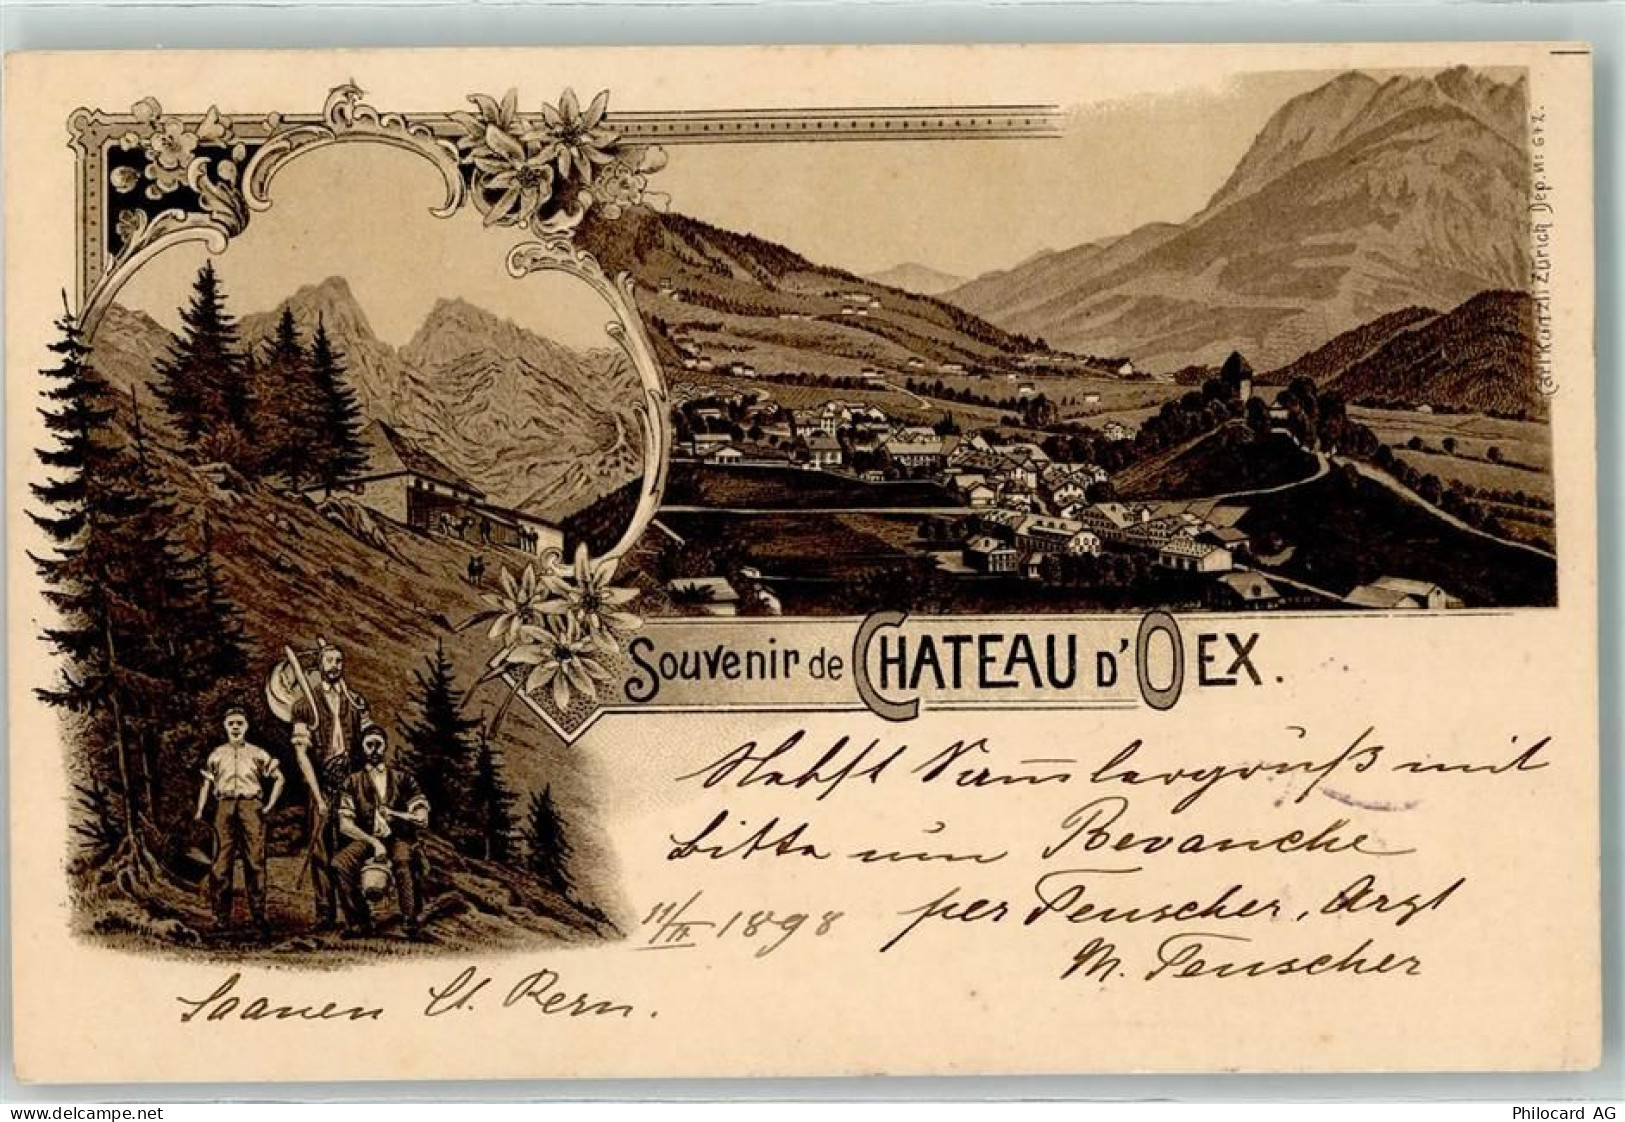 Carl Künzli Zürich Dep. No 672.
Souvenir de CHATEAU D'OEX.
Nebst Sammlergruß mit
bitte um Revanche
per Teuscher, Arzt
11/II 1898
M. Teuscher
Saanen Ct. Bern.
www.delcampe.net
Philocard AG